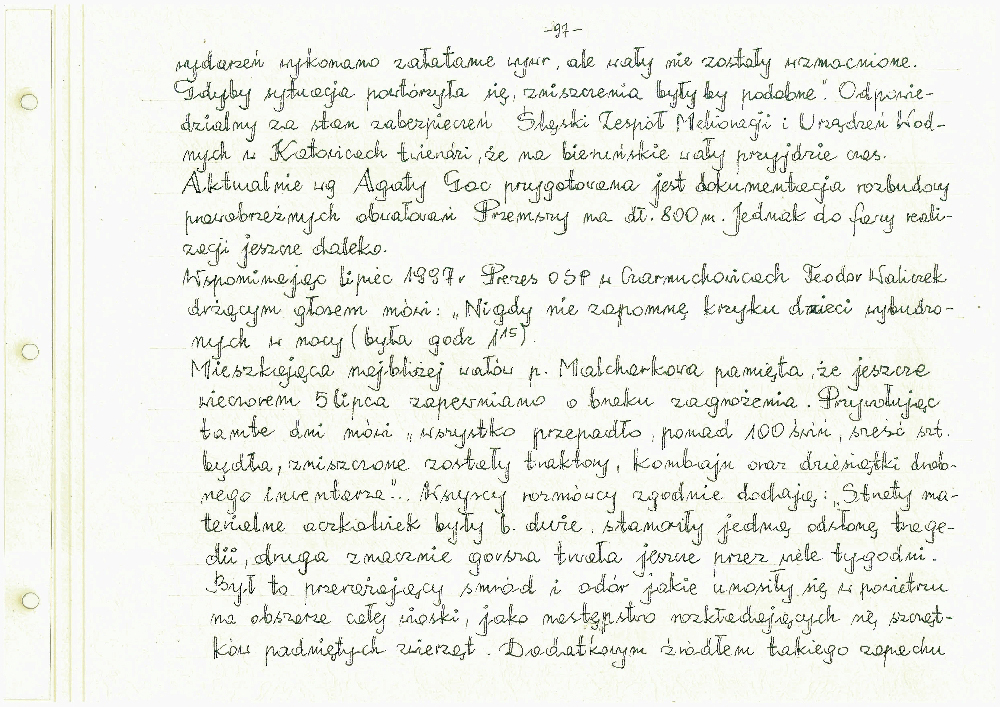 -97-
wydarzeń wykonano załatanie wyrw, ale wały nie zostały wzmocnione.
Gdyby sytuacja powtórzyła się, zniszczenia były by podobne". Odpowie-
dzialny za stan zabezpieczeń Śląski Zespół Melioracji i Urządzeń Wod-
nych w Katowicach twierdzi, że na bieruńskie wały przyjdzie czas.
Aktualnie wg Agaty Goc przygotowana jest dokumentacja rozbudowy
prawobrzeżnych obwałowań Przemszy na dł. 800 m. Jednak do fazy reali-
zacji jeszcze daleko.
Wspominając lipiec 1997r Prezes OSP w Czarnuchowicach Teodor Waliczek
drżącym głosem mówi: „Nigdy nie zapomnę krzyku dzieci wybudzo-
nych w nocy (była godz 1¹⁵).
Mieszkająca najbliżej wałów p. Malcharkowa pamięta, że jeszcze
wieczorem 5 lipca zapewniano o braku zagrożenia. Przywołując
tamte dni mówi „wszystko przepadło, ponad 100 świń, sześć szt.
bydła, zniszczone zostały traktory, kombajn oraz dziesiątki drob-
nego inwentarza"... Wszyscy rozmówcy zgodnie dodają: „Straty ma-
terialne aczkolwiek były b. duże, stanowiły jedną odsłonę trage-
dii, druga znacznie gorsza trwała jeszcze przez wiele tygodni.
Był to przerażający smród i odór jakie unosiły się w powietrzu
na obszarze całej wioski, jako następstwo rozkładających się szcząt-
ków padniętych zwierząt. Dodatkowym źródłem takiego zapachu